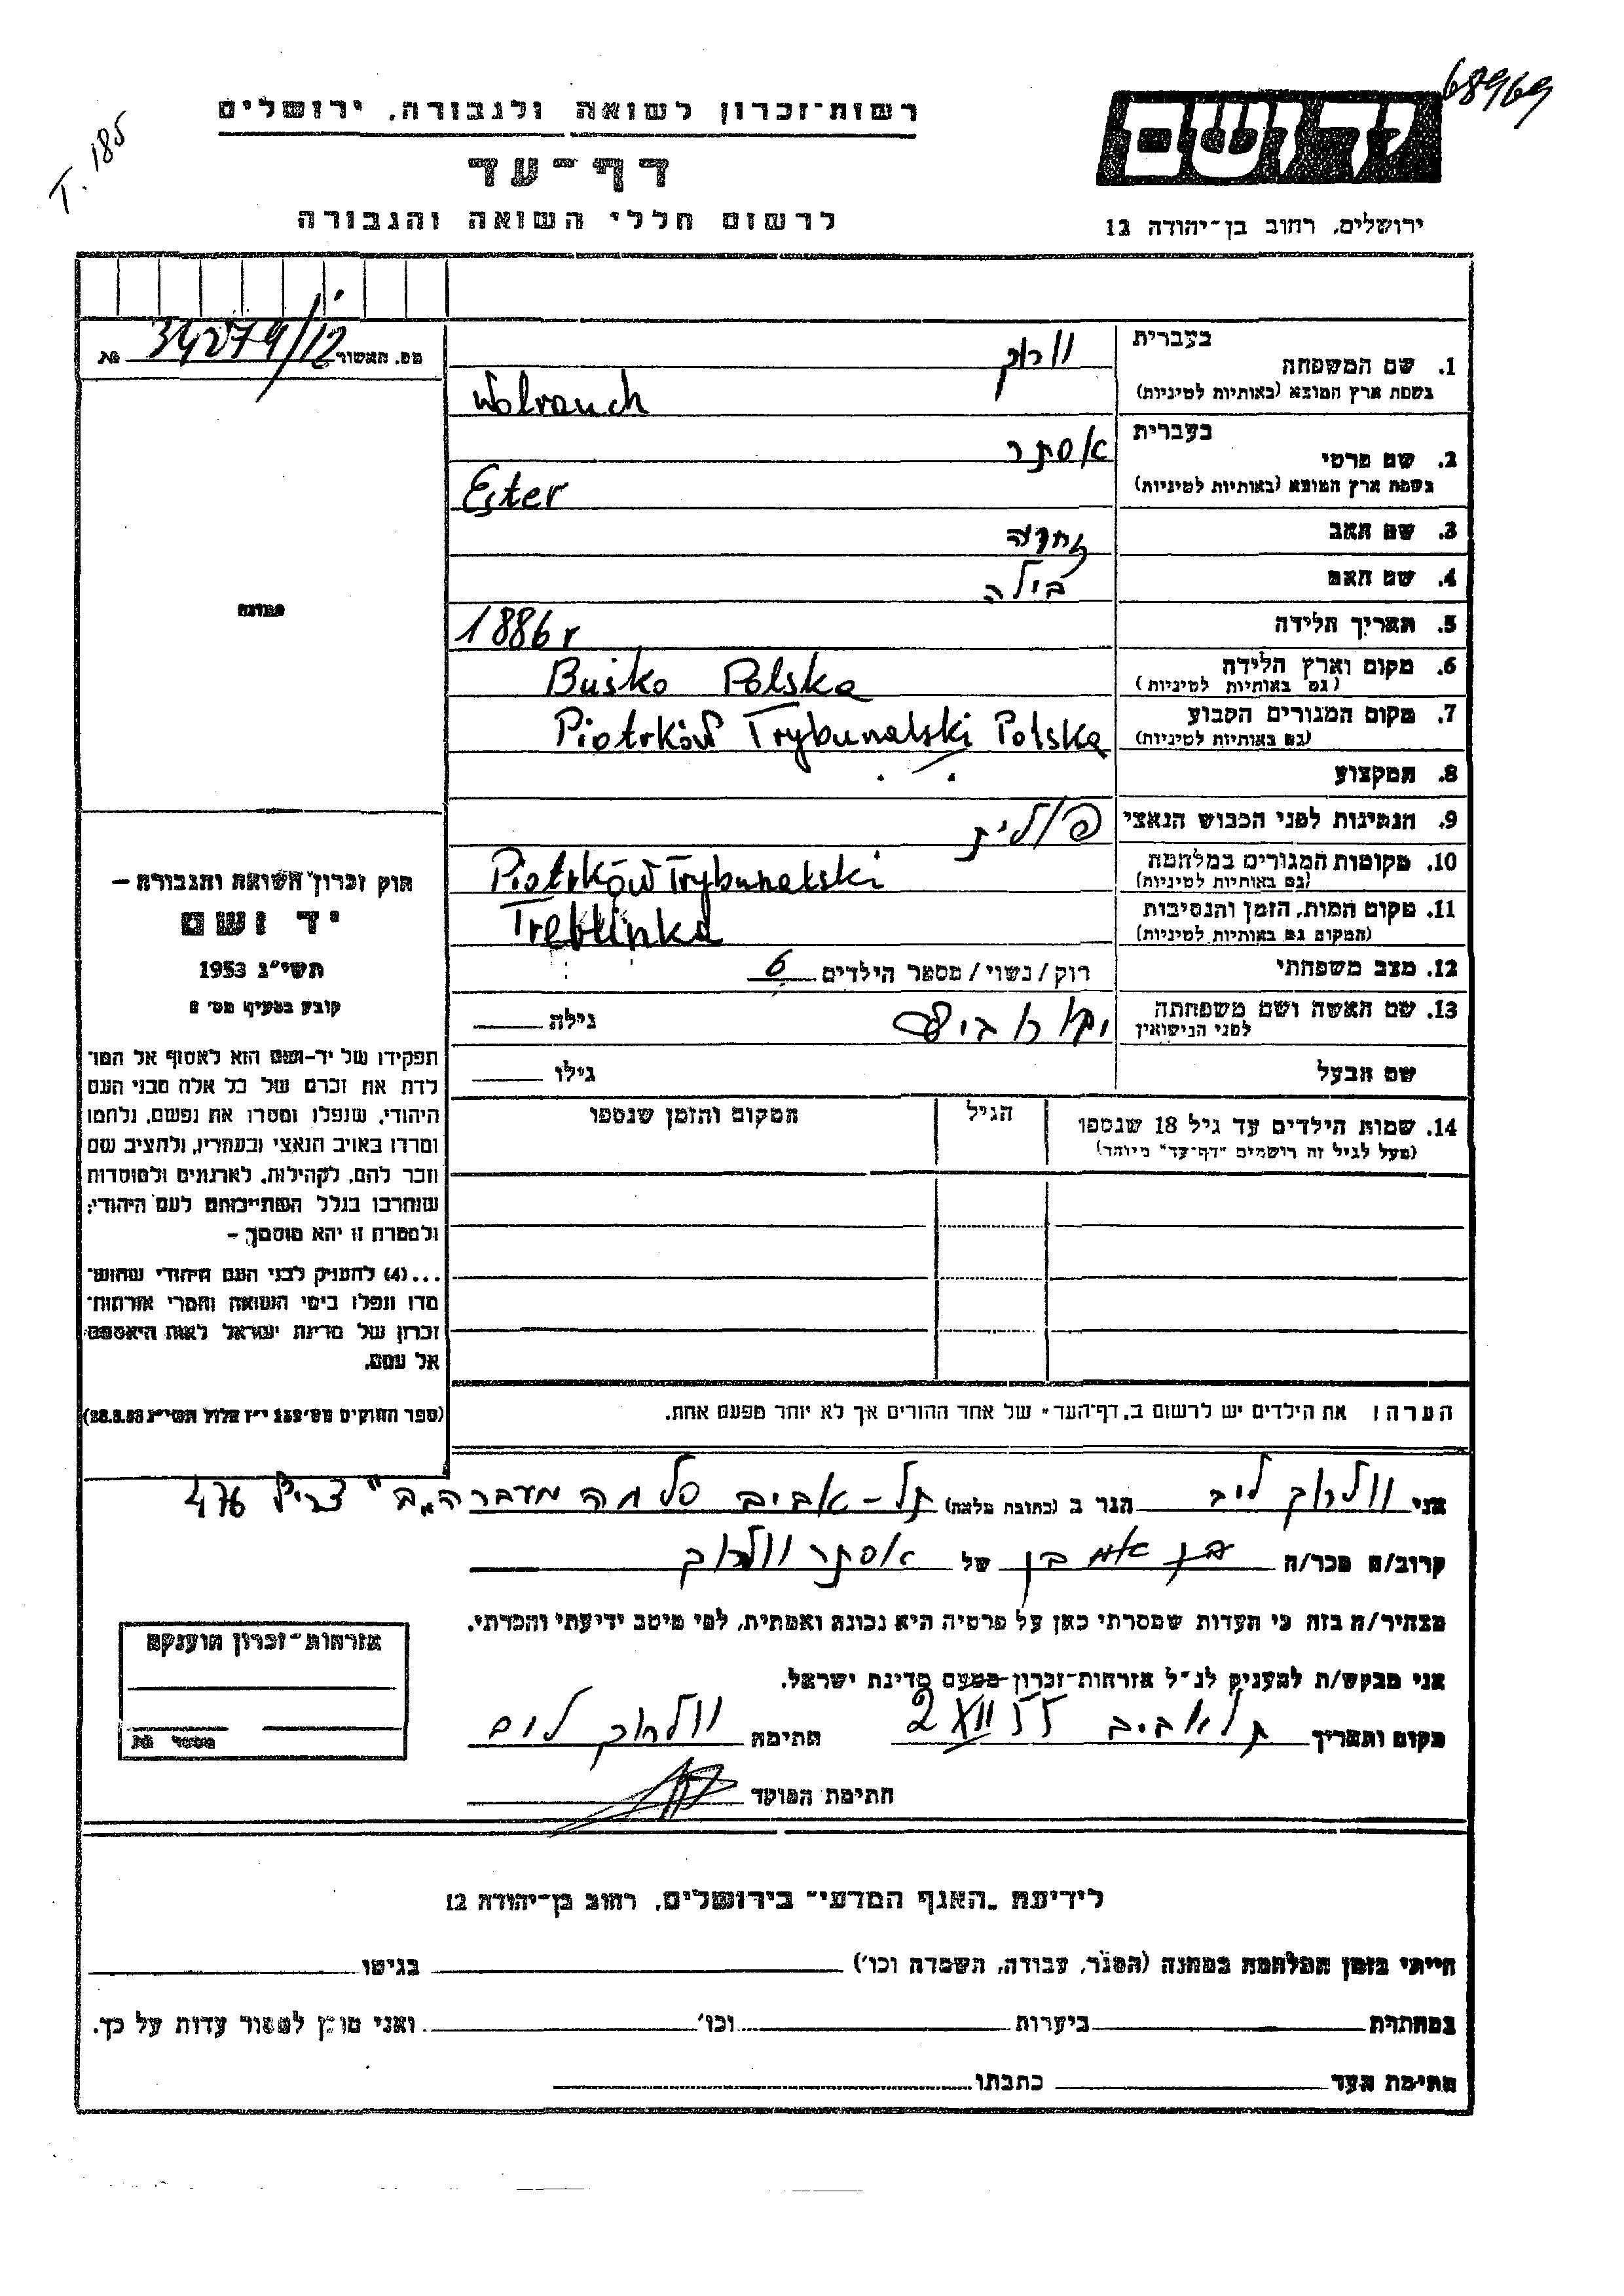 68969
T. 185
רשות-זכרון לשואה ולגבורה, ירושלים
יד ושם
דף-עד
לרשום חללי השואה והגבורה
ירושלים, רחוב בן-יהודה 12
מס. האשור № 34279/12
בעברית
1. שם המשפחה
בשפת ארץ המוצא (באותיות לטיניות) Wolrauch
בעברית אסתר
2. שם פרטי
בשפת ארץ המוצא (באותיות לטיניות) Ester
3. שם האב
4. שם האם בילה
5. תאריך הלידה 1886 r
6. מקום וארץ הלידה Buśko Polska
(גם באותיות לטיניות)
7. מקום המגורים הקבוע Piotrków Trybunalski Polska
(גם באותיות לטיניות)
8. המקצוע
9. הנתינות לפני הכבוש הנאצי פולית
10. מקומות המגורים במלחמה Piotrków Trybunalski
(גם באותיות לטיניות)
11. מקום המות, הזמן והנסיבות Treblinka
(המקום גם באותיות לטיניות)
12. מצב משפחתי רוק/נשוי/מספר הילדים 6
13. שם האשה ושם משפחתה
לפני הנישואין
גילה
שם הבעל
גילו
14. שמות הילדים עד גיל 18 שנספו
(מעל לגיל זה רושמים "דף-עד" מיוחד)
הגיל
המקום והזמן שנספו
הערה: את הילדים יש לרשום ב"דף-העד" של אחד ההורים אך לא יותר מפעם אחת.
תמונה
חוק זכרון השואה והגבורה —
יד ושם
תשי"ג 1953
קובע בסעיף מס' 2
תפקידו של יד-ושם הוא לאסוף אל המו־
לדת את זכרם של כל אלה מבני העם
היהודי, שנפלו ומסרו את נפשם, נלחמו
ומרדו באויב הנאצי ובעוזריו, ולהציב שם
וזכר להם, לקהילות, לארגונים ולמוסדות
שנחרבו בגלל השתייכותם לעם היהודי;
ולמטרה זו יהא מוסמך —
...(4) להעניק לבני העם היהודי שהוש־
מדו ונפלו בימי השואה והמרי אזרחות־
זכרון של מדינת ישראל לאות היאספם
אל עמם.
(ספר החוקים מס' 132 י"ז אלול תשי"ג 28.8.53)
אני וולרוך ליב הגר ב (כתובת מלאה) תל-אביב סלמה מעברה "ב" צריף 476
קרוב/ה מכר/ה של אסתר וולרוך
מצהיר/ה בזה כי העדות שמסרתי כאן על פרטיה היא נכונה ואמתית, לפי מיטב ידיעתי והכרתי.
אני מבקש/ת להעניק לנ"ל אזרחות-זכרון מטעם מדינת ישראל.
מקום ותאריך תל אביב חתימה וולרוך ליב
חתימת הפוקד
אזרחות-זכרון הוענקה
מספר №
לידיעת "האגף המדעי" בירושלים, רחוב בן-יהודה 12
הייתי בזמן המלחמה במחנה (הסגר, עבודה, השמדה וכו') בגיטו
במחתרת ביערות וכו' ואני מוכן למסור עדות על כך.
חתימת העד כתבתו